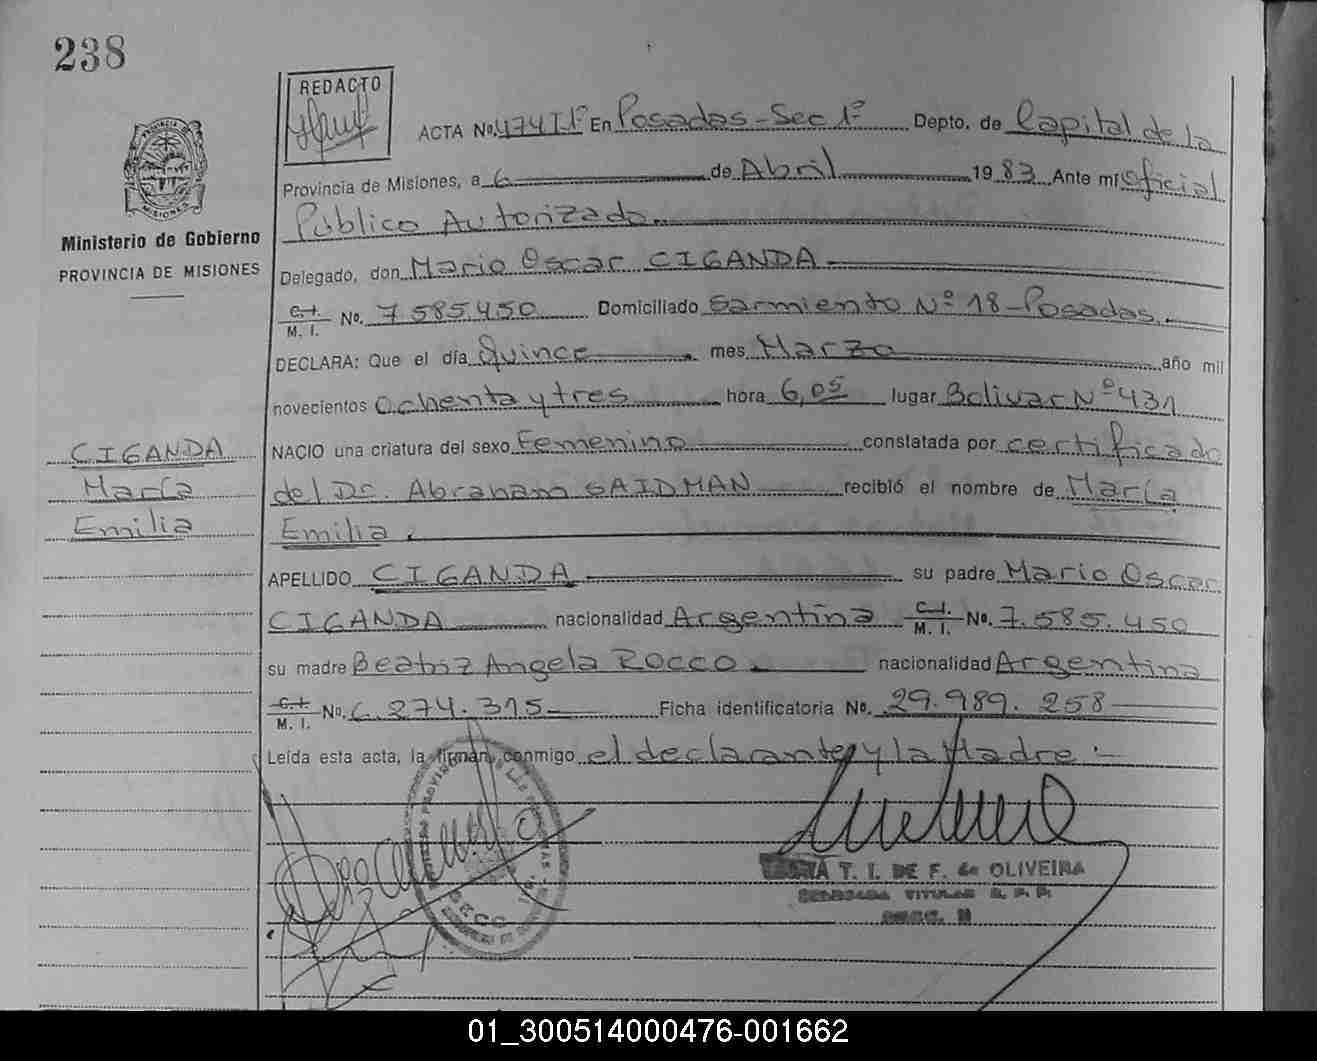 238
REDACTO
ACTA No. 474 T 1° En Posadas - Sec 1° Depto. de Capital de la
Provincia de Misiones, a 6 de Abril 1983 Ante mí Oficial
Público Autorizado
PROVINCIA DE
MISIONES
Ministerio de Gobierno
PROVINCIA DE MISIONES
Delegado, don Mario Oscar CIGANDA
C.I.
M. I. No. 7.585.450 Domiciliado Sarmiento N° 18 - Posadas.
DECLARA: Que el día Quince mes Marzo año mil
novecientos Ochenta y tres hora 6,05 lugar Bolivar N° 431
CIGANDA
María
Emilia
NACIO una criatura del sexo Femenino constatada por certificado
del Dr. Abraham SAIDMAN recibió el nombre de María
Emilia.
APELLIDO CIGANDA su padre Mario Oscar
CIGANDA nacionalidad Argentina C.I.
M. I. No. 7.585.450
su madre Beatriz Angela ROCCO nacionalidad Argentina
C.I.
M. I. No. 6.274.315 Ficha identificatoria No. 29.989.258
Leída esta acta, la firman conmigo el declarante y la Madre.-
T. I. DE F. de OLIVEIRA
TITULAR R. P. P.
01_300514000476-001662